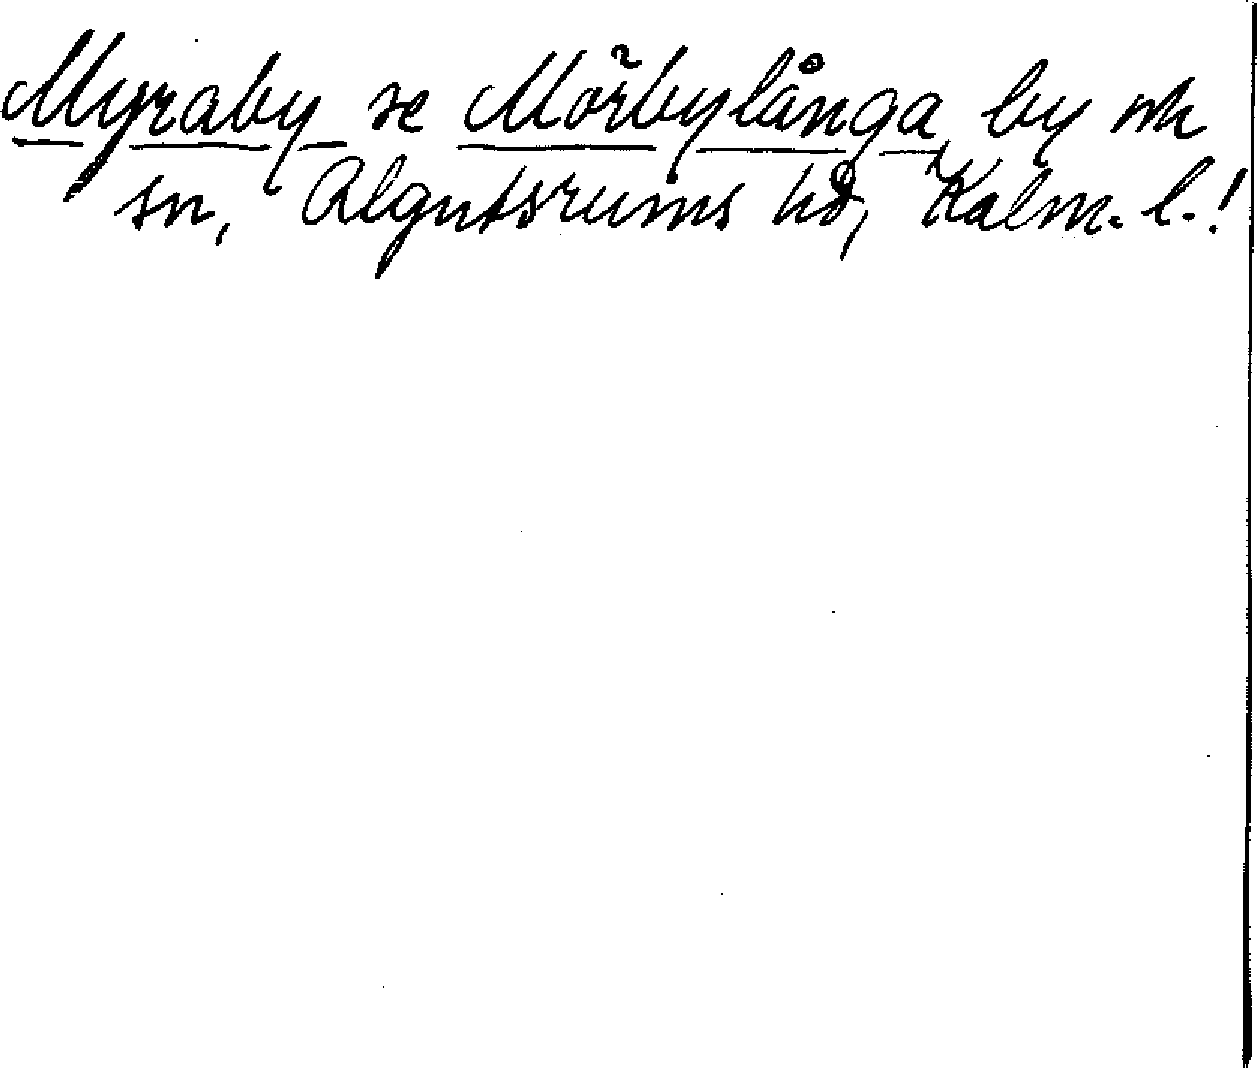 Myraby se Mörbylånga by ok
sn, Algutsrums hd, Kalm. l.!